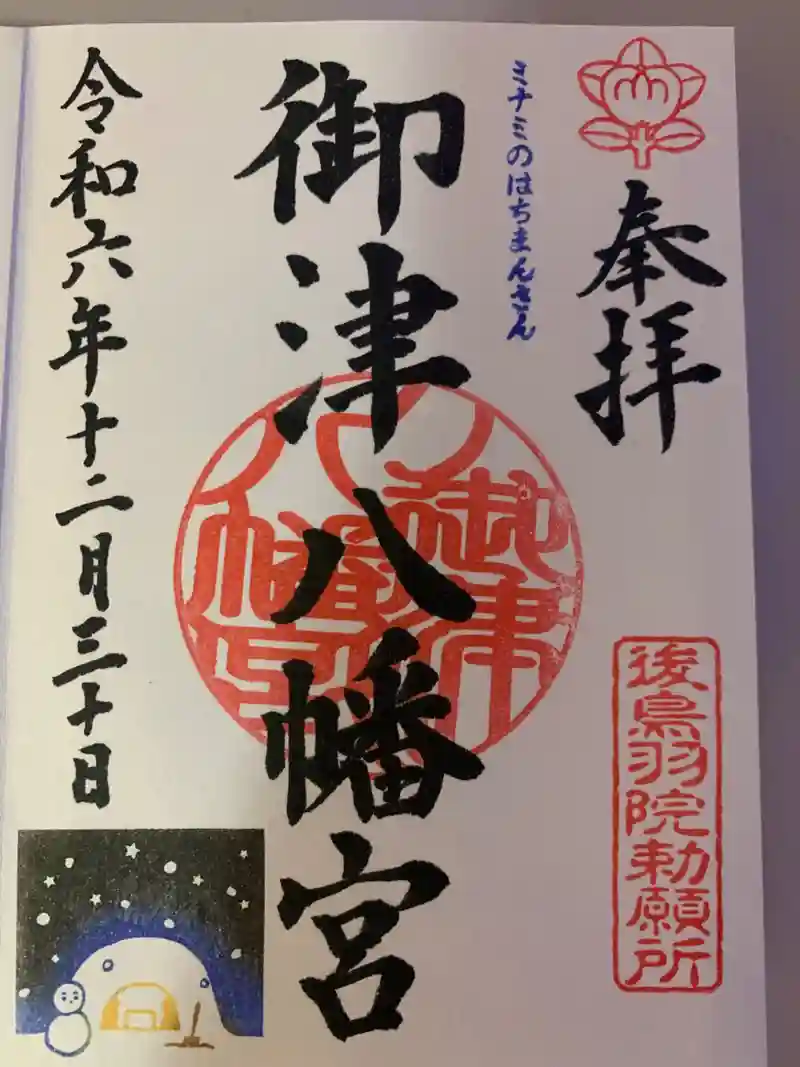 奉拝
後鳥羽院勅願所
ミナミのはちまんさん
御津八幡宮
御津八幡宮
令和六年十二月三十日